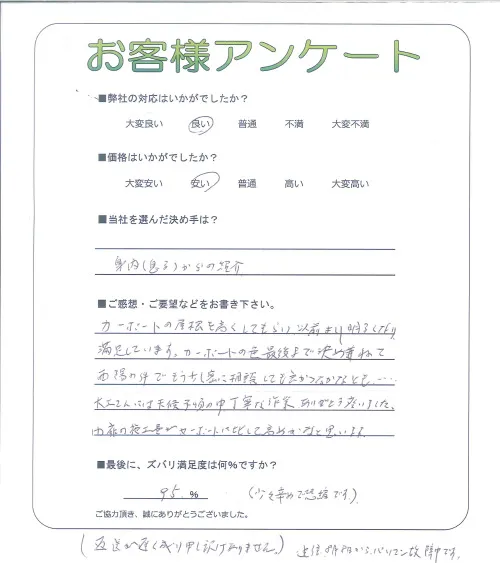 お客様アンケート
■弊社の対応はいかがでしたか？
大変良い 良い 普通 不満 大変不満
■価格はいかがでしたか？
大変安い 安い 普通 高い 大変高い
■当社を選んだ決め手は？
身内(息子)からの紹介
■ご感想・ご要望などをお書き下さい。
カーポートの屋根を高くしてもらい以前より明るくなり
満足しています。カーポートの色最後まで決め兼ねて
の件でもう少し息に相談しても良かったかなとも……
大工さんには天候不順の中丁寧な作業ありがとう座いました。
の施工量がカーポートに比して高めかなと思います
■最後に、ズバリ満足度は何%ですか？
95 % (少々辛めで恐縮です)
ご協力頂き、誠にありがとうございました。
(返送が遅く成り申し訳けありません。) からパソコン故障中です。